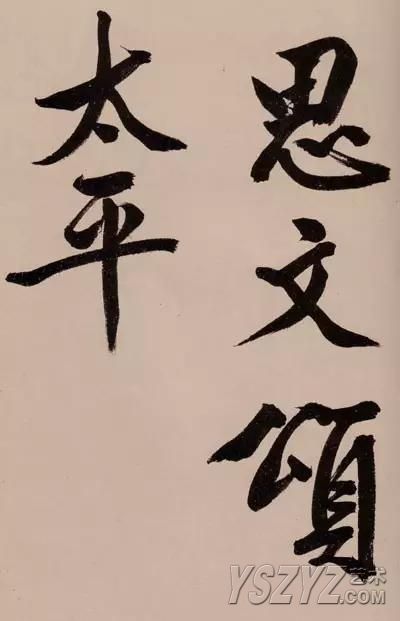 思文頌
太平
YSZYZ艺术
.COM